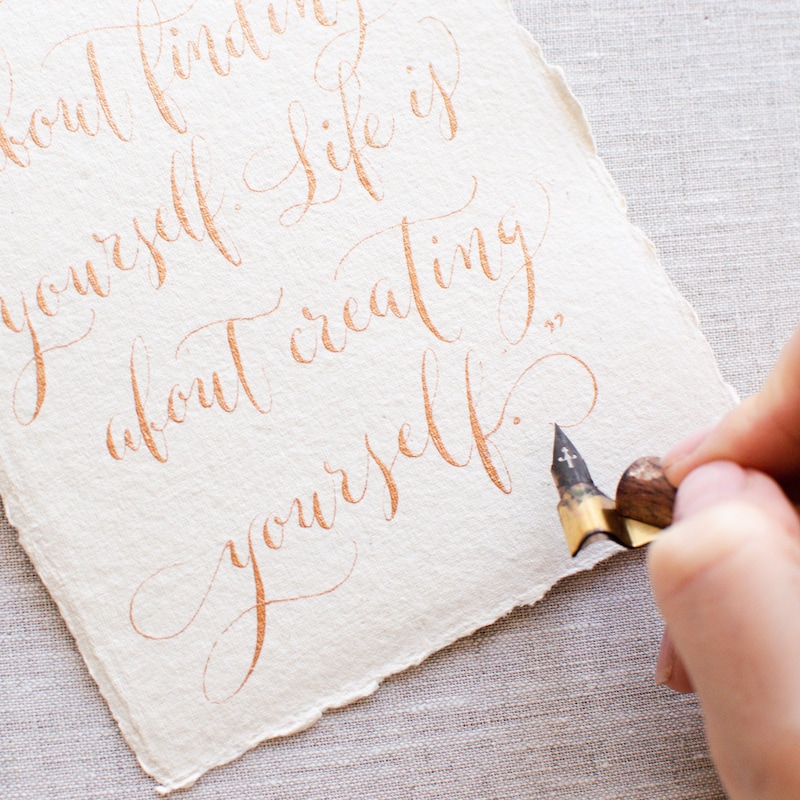 about finding
yourself. Life is
about creating
yourself."